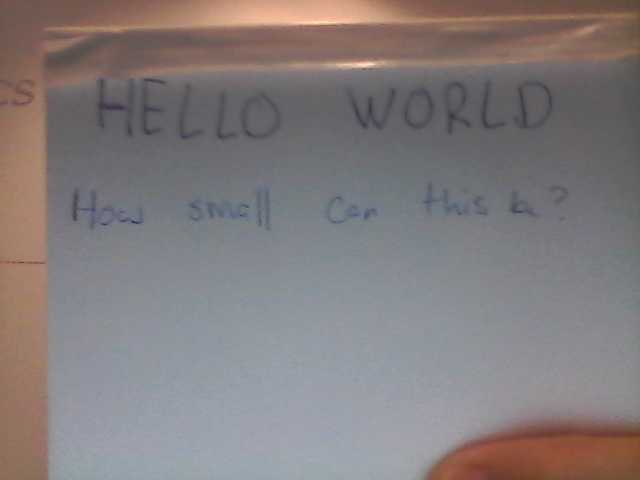 CS
HELLO WORLD
How small can this be?